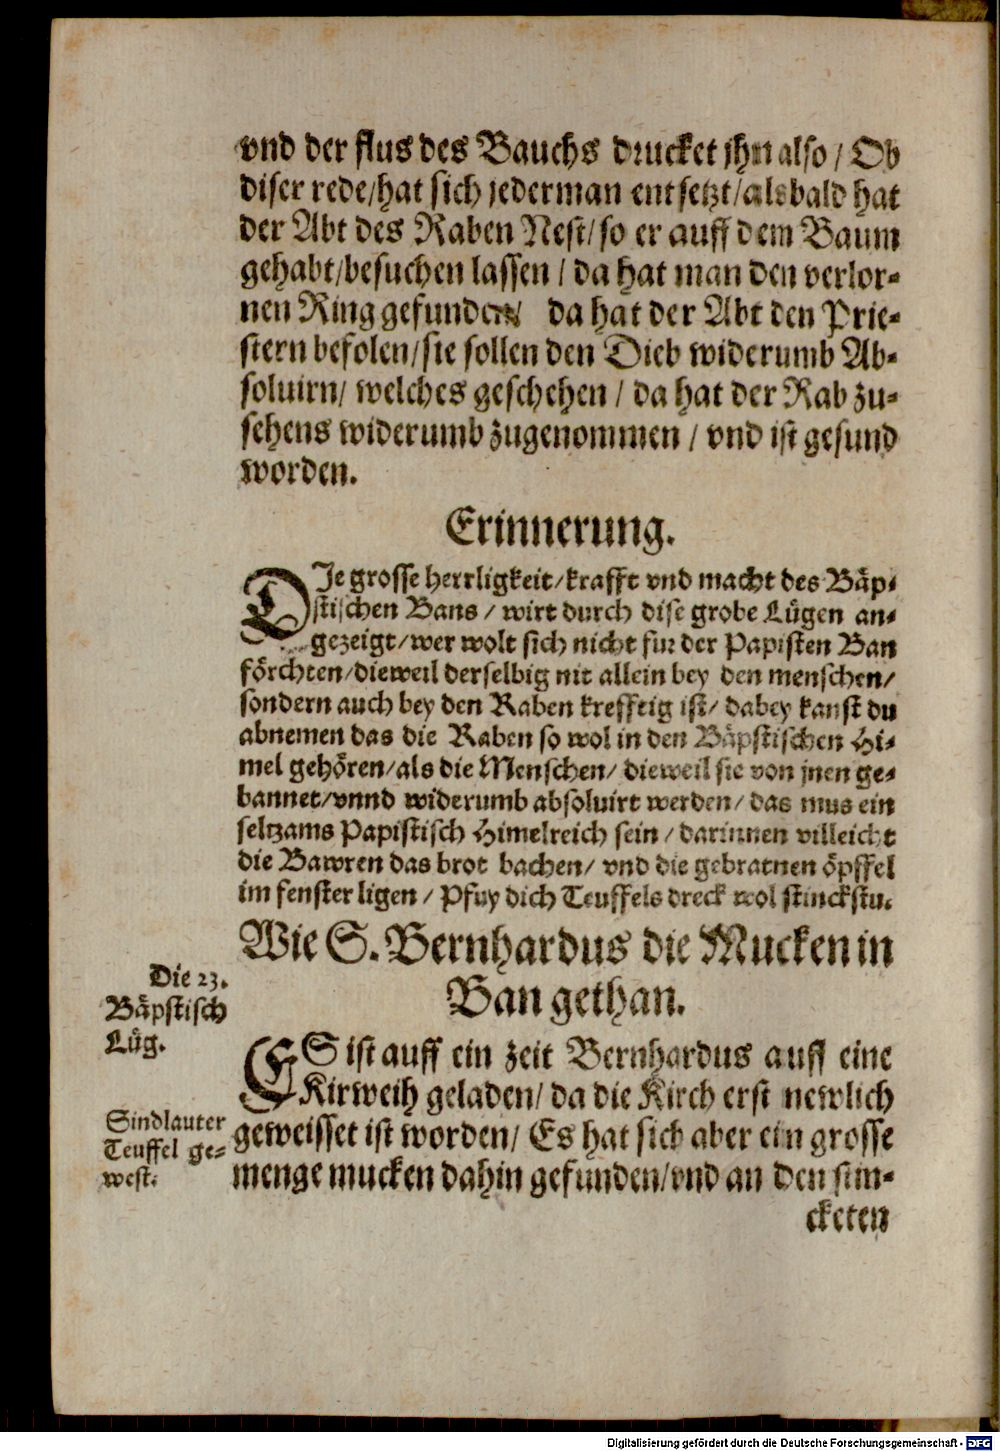 vnd der flus des Bauchs drucket jhn also / Ob
diser rede/hat sich jederman entsetzt/alsbald hat
der Abt des Raben Nest/so er auff dem Baum
gehabt/besuchen lassen / da hat man den verlor-
nen Ring gefunden/ da hat der Abt den Prie-
stern befolen/sie sollen den Dieb widerumb Ab-
soluirn/ welches geschehen / da hat der Rab zu-
sehens widerumb zugenommen / vnd ist gesund
worden.
Erinnerung.
DIe grosse herrligkeit/krafft vnd macht des Bäp-
stischen Bans / wirt durch dise grobe Lügen an-
gezeigt/wer wolt sich nicht fur der Papisten Ban
förchten/dieweil derselbig nit allein bey den menschen/
sondern auch bey den Raben krefftig ist/ dabey kanst du
abnemen das die Raben so wol in den Bäpstischen Hi-
mel gehören/als die Menschen/ dieweil sie von jnen ge-
bannet/vnnd widerumb absoluirt werden/ das mus ein
seltzams Papistisch Himelreich sein / darinnen villeicht
die Bawren das brot bachen/ vnd die gebratnen öpffel
im fenster ligen / Pfuy dich Teuffels dreck wol stinckstu.
Wie S. Bernhardus die Mucken in
Ban gethan.
Die 23.
Bäpstisch
Lüg.
ES ist auff ein zeit Bernhardus auff eine
Kirweih geladen/ da die Kirch erst newlich
geweisset ist worden/ Es hat sich aber ein grosse
menge mucken dahin gefunden/vnd an den stin-
cketen
Sind lauter
Teuffel ge-
west.
Digitalisierung gefördert durch die Deutsche Forschungsgemeinschaft - DFG